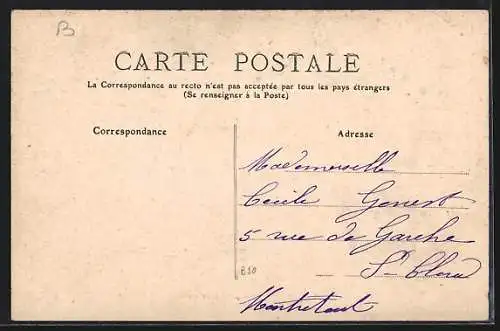 B
CARTE POSTALE
La Correspondance au recto n'est pas acceptée par tous les pays étrangers
(Se renseigner à la Poste)
Correspondance
Adresse
Mademoiselle
Cécile Genest
5 rue de Garche
St Cloud
B10
Montretout